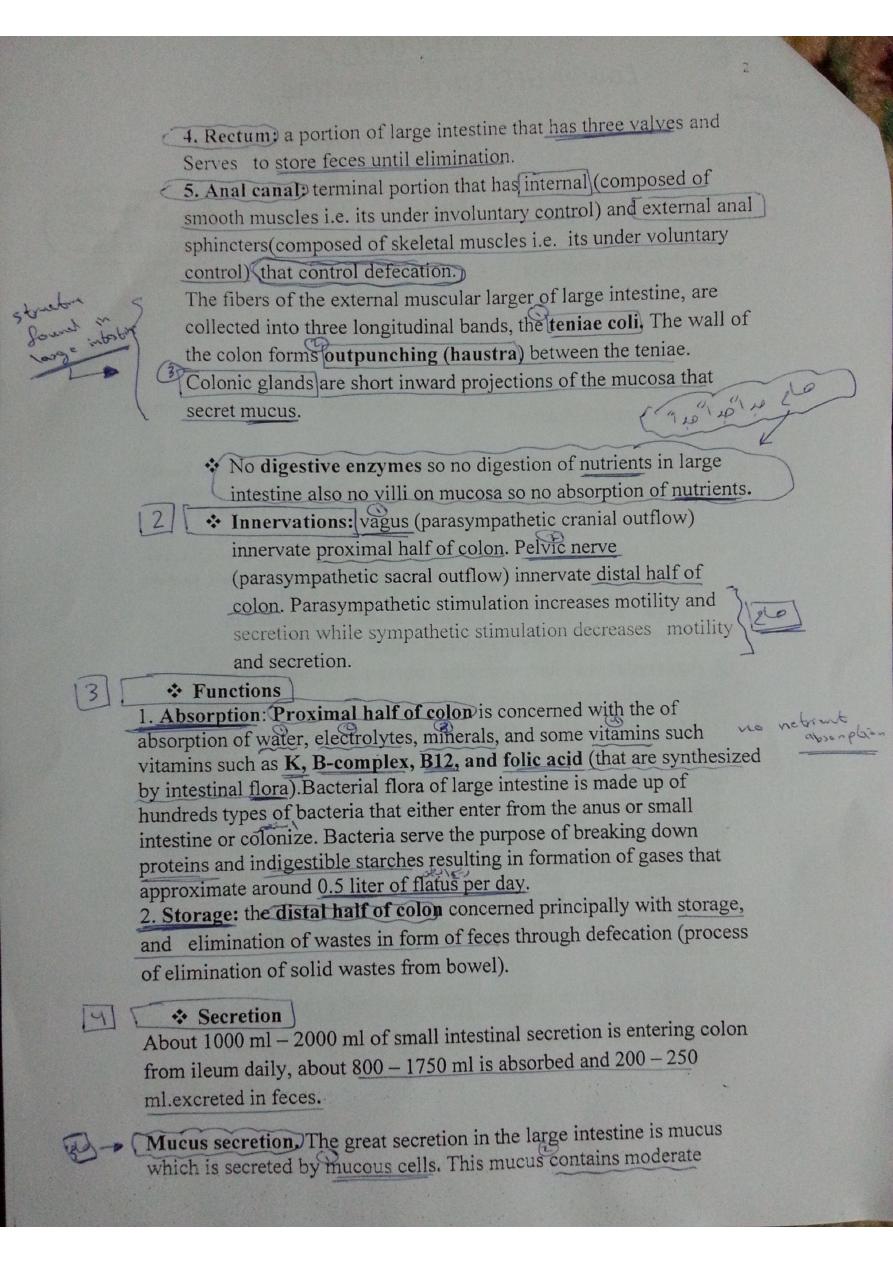 2
4. Rectum: a portion of large intestine that has three valves and
Serves to store feces until elimination.
5. Anal canal: terminal portion that has internal (composed of
smooth muscles i.e. its under involuntary control) and external anal
sphincters(composed of skeletal muscles i.e. its under voluntary
control) that control defecation.
The fibers of the external muscular larger of large intestine, are
collected into three longitudinal bands, the teniae coli. The wall of
the colon forms outpunching (haustra) between the teniae.
Colonic glands are short inward projections of the mucosa that
secret mucus.
structure
found in
large intestine
1
2
3
هام جدا "جدا" جدا"
❖ No digestive enzymes so no digestion of nutrients in large
intestine also no villi on mucosa so no absorption of nutrients.
2
❖ Innervations: vagus (parasympathetic cranial outflow)
innervate proximal half of colon. Pelvic nerve
(parasympathetic sacral outflow) innervate distal half of
colon. Parasympathetic stimulation increases motility and
secretion while sympathetic stimulation decreases motility
and secretion.
هام
3
❖ Functions
1. Absorption: Proximal half of colon is concerned with the of
absorption of water, electrolytes, minerals, and some vitamins such
vitamins such as K, B-complex, B12, and folic acid (that are synthesized
by intestinal flora).Bacterial flora of large intestine is made up of
hundreds types of bacteria that either enter from the anus or small
intestine or colonize. Bacteria serve the purpose of breaking down
proteins and indigestible starches resulting in formation of gases that
approximate around 0.5 liter of flatus per day.
no netrient
absorption
2. Storage: the distal half of colon concerned principally with storage,
and elimination of wastes in form of feces through defecation (process
of elimination of solid wastes from bowel).
4
❖ Secretion
About 1000 ml – 2000 ml of small intestinal secretion is entering colon
from ileum daily, about 800 – 1750 ml is absorbed and 200 – 250
ml.excreted in feces.
Mucus secretion. The great secretion in the large intestine is mucus
which is secreted by mucous cells. This mucus contains moderate